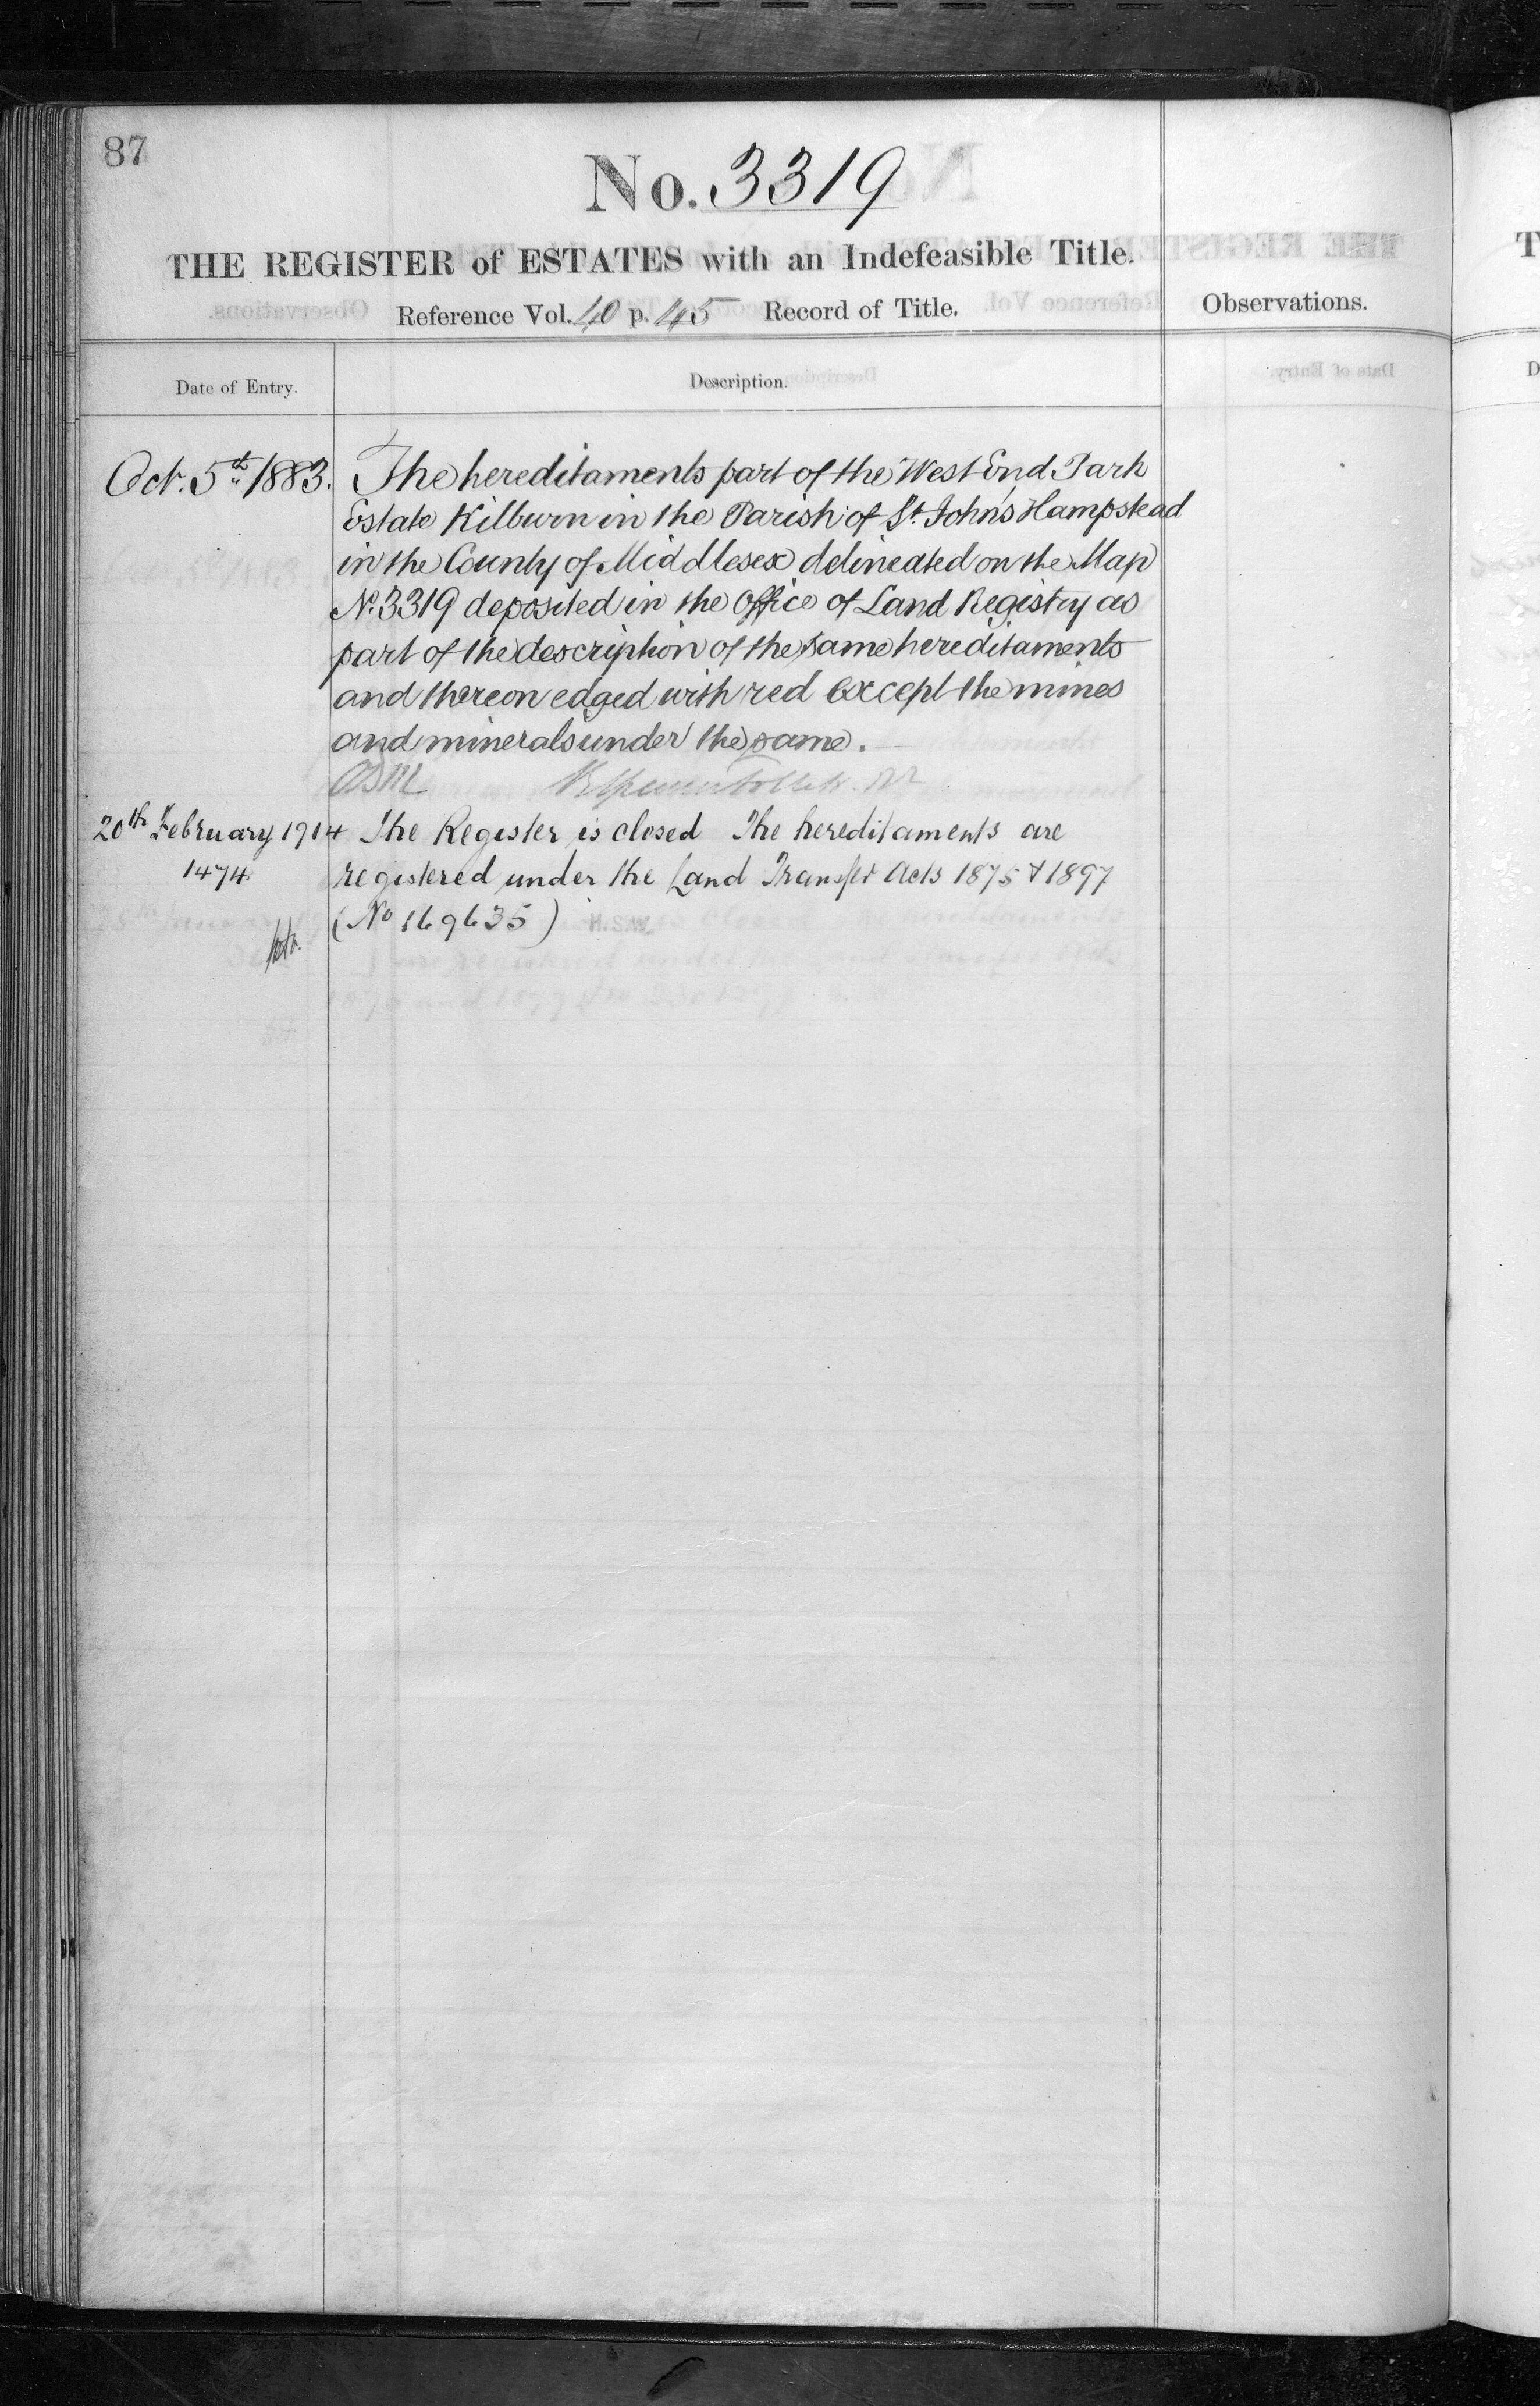 87
No. 3319
THE REGISTER of ESTATES with an Indefeasible Title.
Reference Vol. 40 p. 45 Record of Title.
Observations.
Date of Entry.
Description.
Oct. 5th 1883.
The hereditaments part of the West End Park
Estate Kilburn in the Parish of St. John's Hampstead
in the County of Middlesex delineated on the Map
No. 3319 deposited in the Office of Land Registry as
part of the description of the same hereditaments
and thereon edged with red except the mines
and minerals under the same.
20th February 1914
1474
The Register is closed The hereditaments are
registered under the Land Transfer Acts 1875 & 1897
(No 169635)